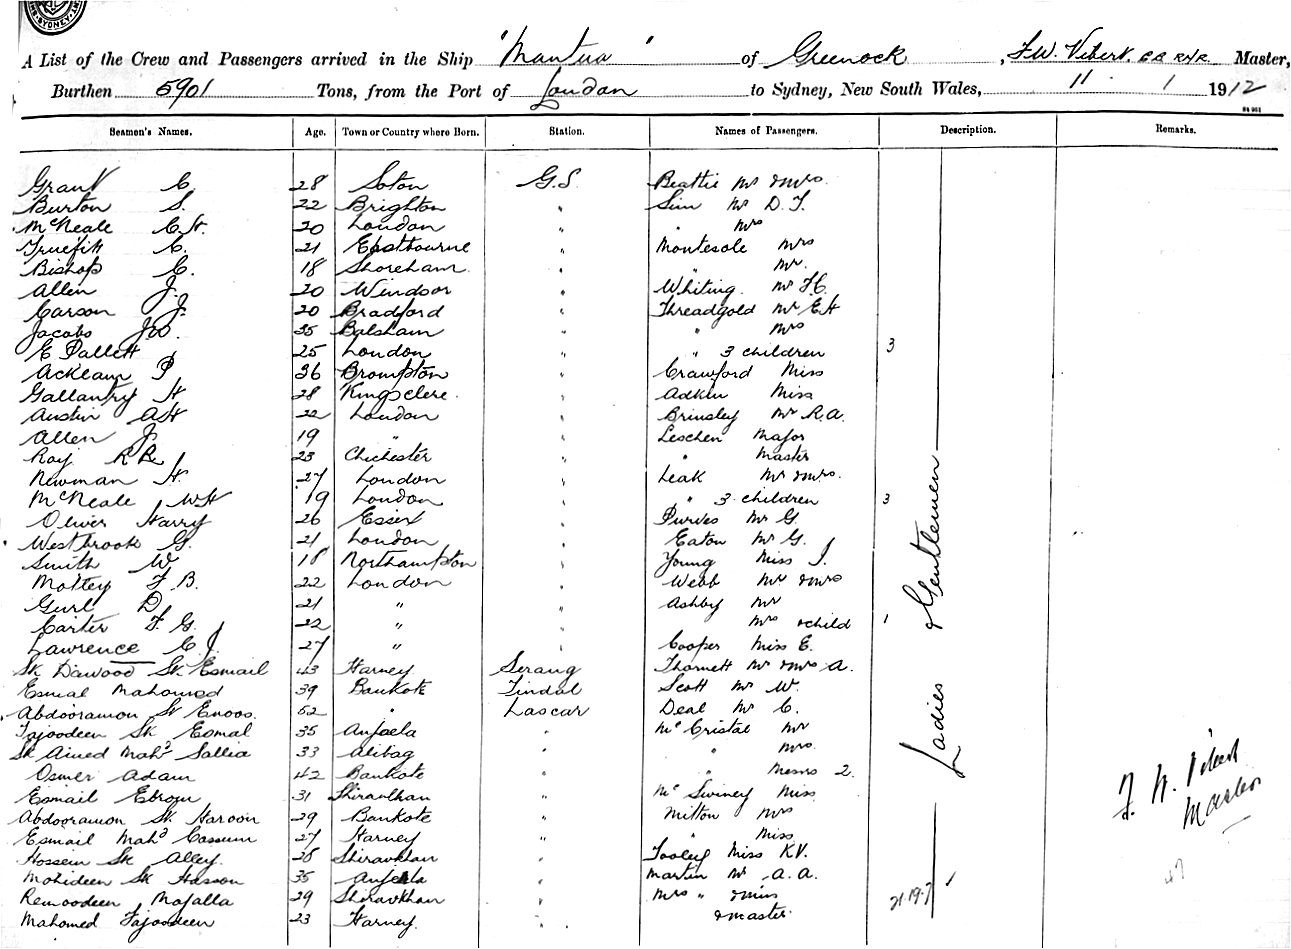 SYDNEY
A List of the Crew and Passengers arrived in the Ship "Mantua" of Greenock, F.W. Vibert. C.B. R.N.R. Master,
Burthen 5901 Tons, from the Port of London to Sydney, New South Wales, 11 1 1912
Seamen's Names. Age. Town or Country where Born. Station. Names of Passengers. Description. Remarks.
Grant C. 28 Soton G.S Beattie Mr & Mrs.
Burton S. 22 Brighton " Sim Mr D. F.
McNeale C.H. 20 London " " Mrs
Truefitt C. 21 Eastbourne " Montesole Mrs
Bishop C. 18 Shoreham " " Mr.
Allen J. 20 Windsor " Whiting. Mr F.C.
Carson J. 20 Bradford " Threadgold Mr E H
Jacobs JW. 35 Balsham " " Mrs
E Pallett 25 London " " 3 children 3
Ackleam P 36 Brompton " Crawford Miss
Gallantry H 28 Kingsclere " Adkin Miss
Austin A H 22 London " Brinsley Mr R.A.
Allen J. 19 " " Leschen Major
Ray R R. 23 Chichester " " Master
Newman H. 27 London " Leak Mr & Mrs.
McNeale W H 19 London " " 3 children 3
Oliver Harry 26 Essex " Purves Mr G.
Westbrook G. 21 London " Eaton Mr G.
Smith W 18 Northampton " Young Miss I.
Mottey F B. 22 London " Webb Mr & Mrs
Gurl D 21 " " Ashby Mr
Carter F. G. 22 " " Mrs & child 1
Lawrence C J. 27 " " Cooper Miss E.
Sk Dawood Sk. Esmail 43 Harney Serang Thornett Mr & Mrs A.
Esmal Mahomed 39 Bankote Tindal Scott Mr W.
Abdooramon Sk Enoos. 52 " Lascar Deal Mr C.
Tajoodeen Sk Esmal 35 Anjaela " McCristal Mr
Sk Amed Mahd Sallia 33 Alibag " " Mrs.
Osmer Adam 42 Bankote " " Messrs 2.
Esmail Ebrom 31 Shiravkhan " McSwiney Miss
Abdooramon Sk Haroon 29 Bankote " Mitton Mrs
Esmail Mahd Cassum 27 Harney " " Miss
Hossein Sk Alley. 28 Shiravkhan " Tooley Miss K.V.
Mohideen Sk Hasson 35 Anjela " Martin Mr A.A.
Remoodeen Mafalla 29 Shiravkhan " Mrs " & Miss
Mahomed Tajoodeen 23 Harney. " & Master.
Ladies & Gentlemen
21-19-7
F. W. Vibert
Master
47